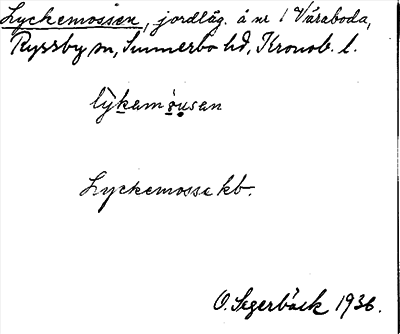 Lyckemossen, jordläg. å nr 1 Våraboda,
Ryssby sn, Sunnerbo hd, Kronob. l.
Lyckemosse kb.
O. Segerbäck 1936.